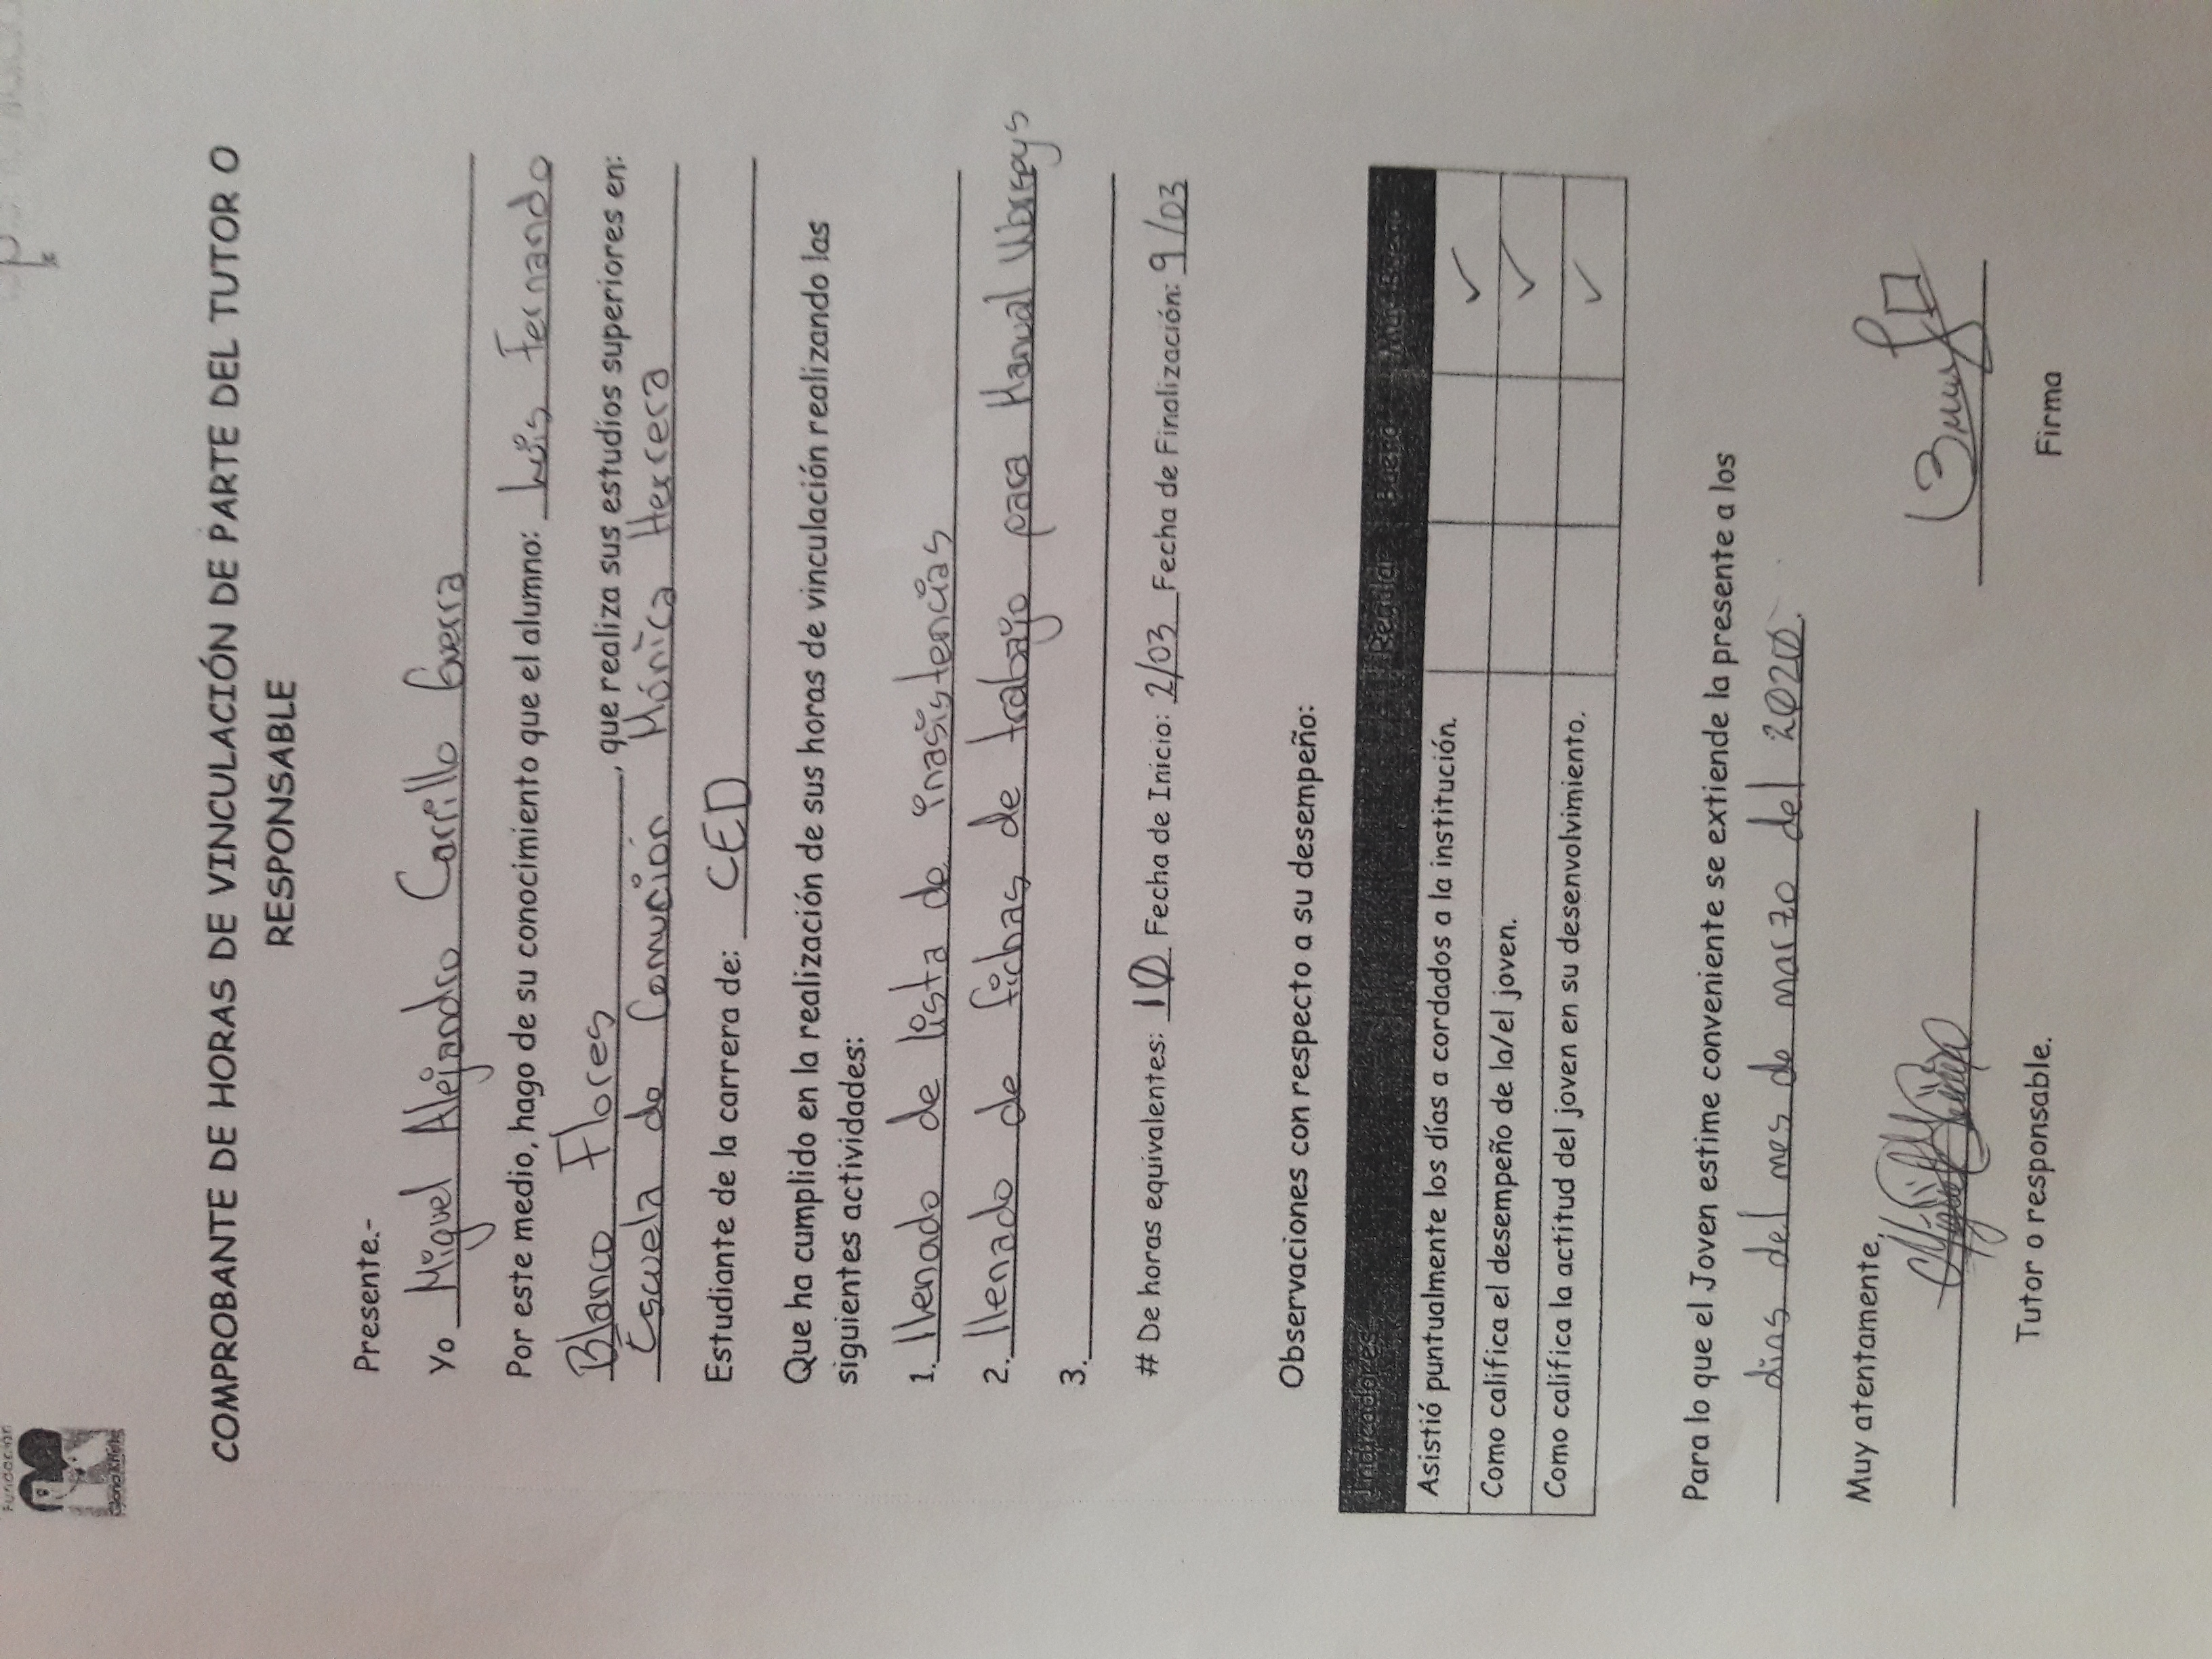 Fundación
Gloria Kriete
COMPROBANTE DE HORAS DE VINCULACIÓN DE PARTE DEL TUTOR O
RESPONSABLE
Presente.-
Yo Miguel Alejandro Carrillo Guerra
Por este medio, hago de su conocimiento que el alumno: Luis Fernando
Blanco Flores, que realiza sus estudios superiores en:
Escuela de Comución Mónica Herrera
Estudiante de la carrera de: CED
Que ha cumplido en la realización de sus horas de vinculación realizando las
siguientes actividades:
1. llenado de lista de inasistencias
2. llenado de fichas de trabajo para Manual
3.
# De horas equivalentes: 10 Fecha de Inicio: 2/03 Fecha de Finalización: 9/03
Observaciones con respecto a su desempeño:
Indicadores Regular Bueno Muy Bueno
Asistió puntualmente los días a cordados a la institución. ✓
Como califica el desempeño de la/el joven. ✓
Como califica la actitud del joven en su desenvolvimiento. ✓
Para lo que el Joven estime conveniente se extiende la presente a los
dias del mes de marzo del 2020.
Muy atentamente,
Tutor o responsable.
Firma